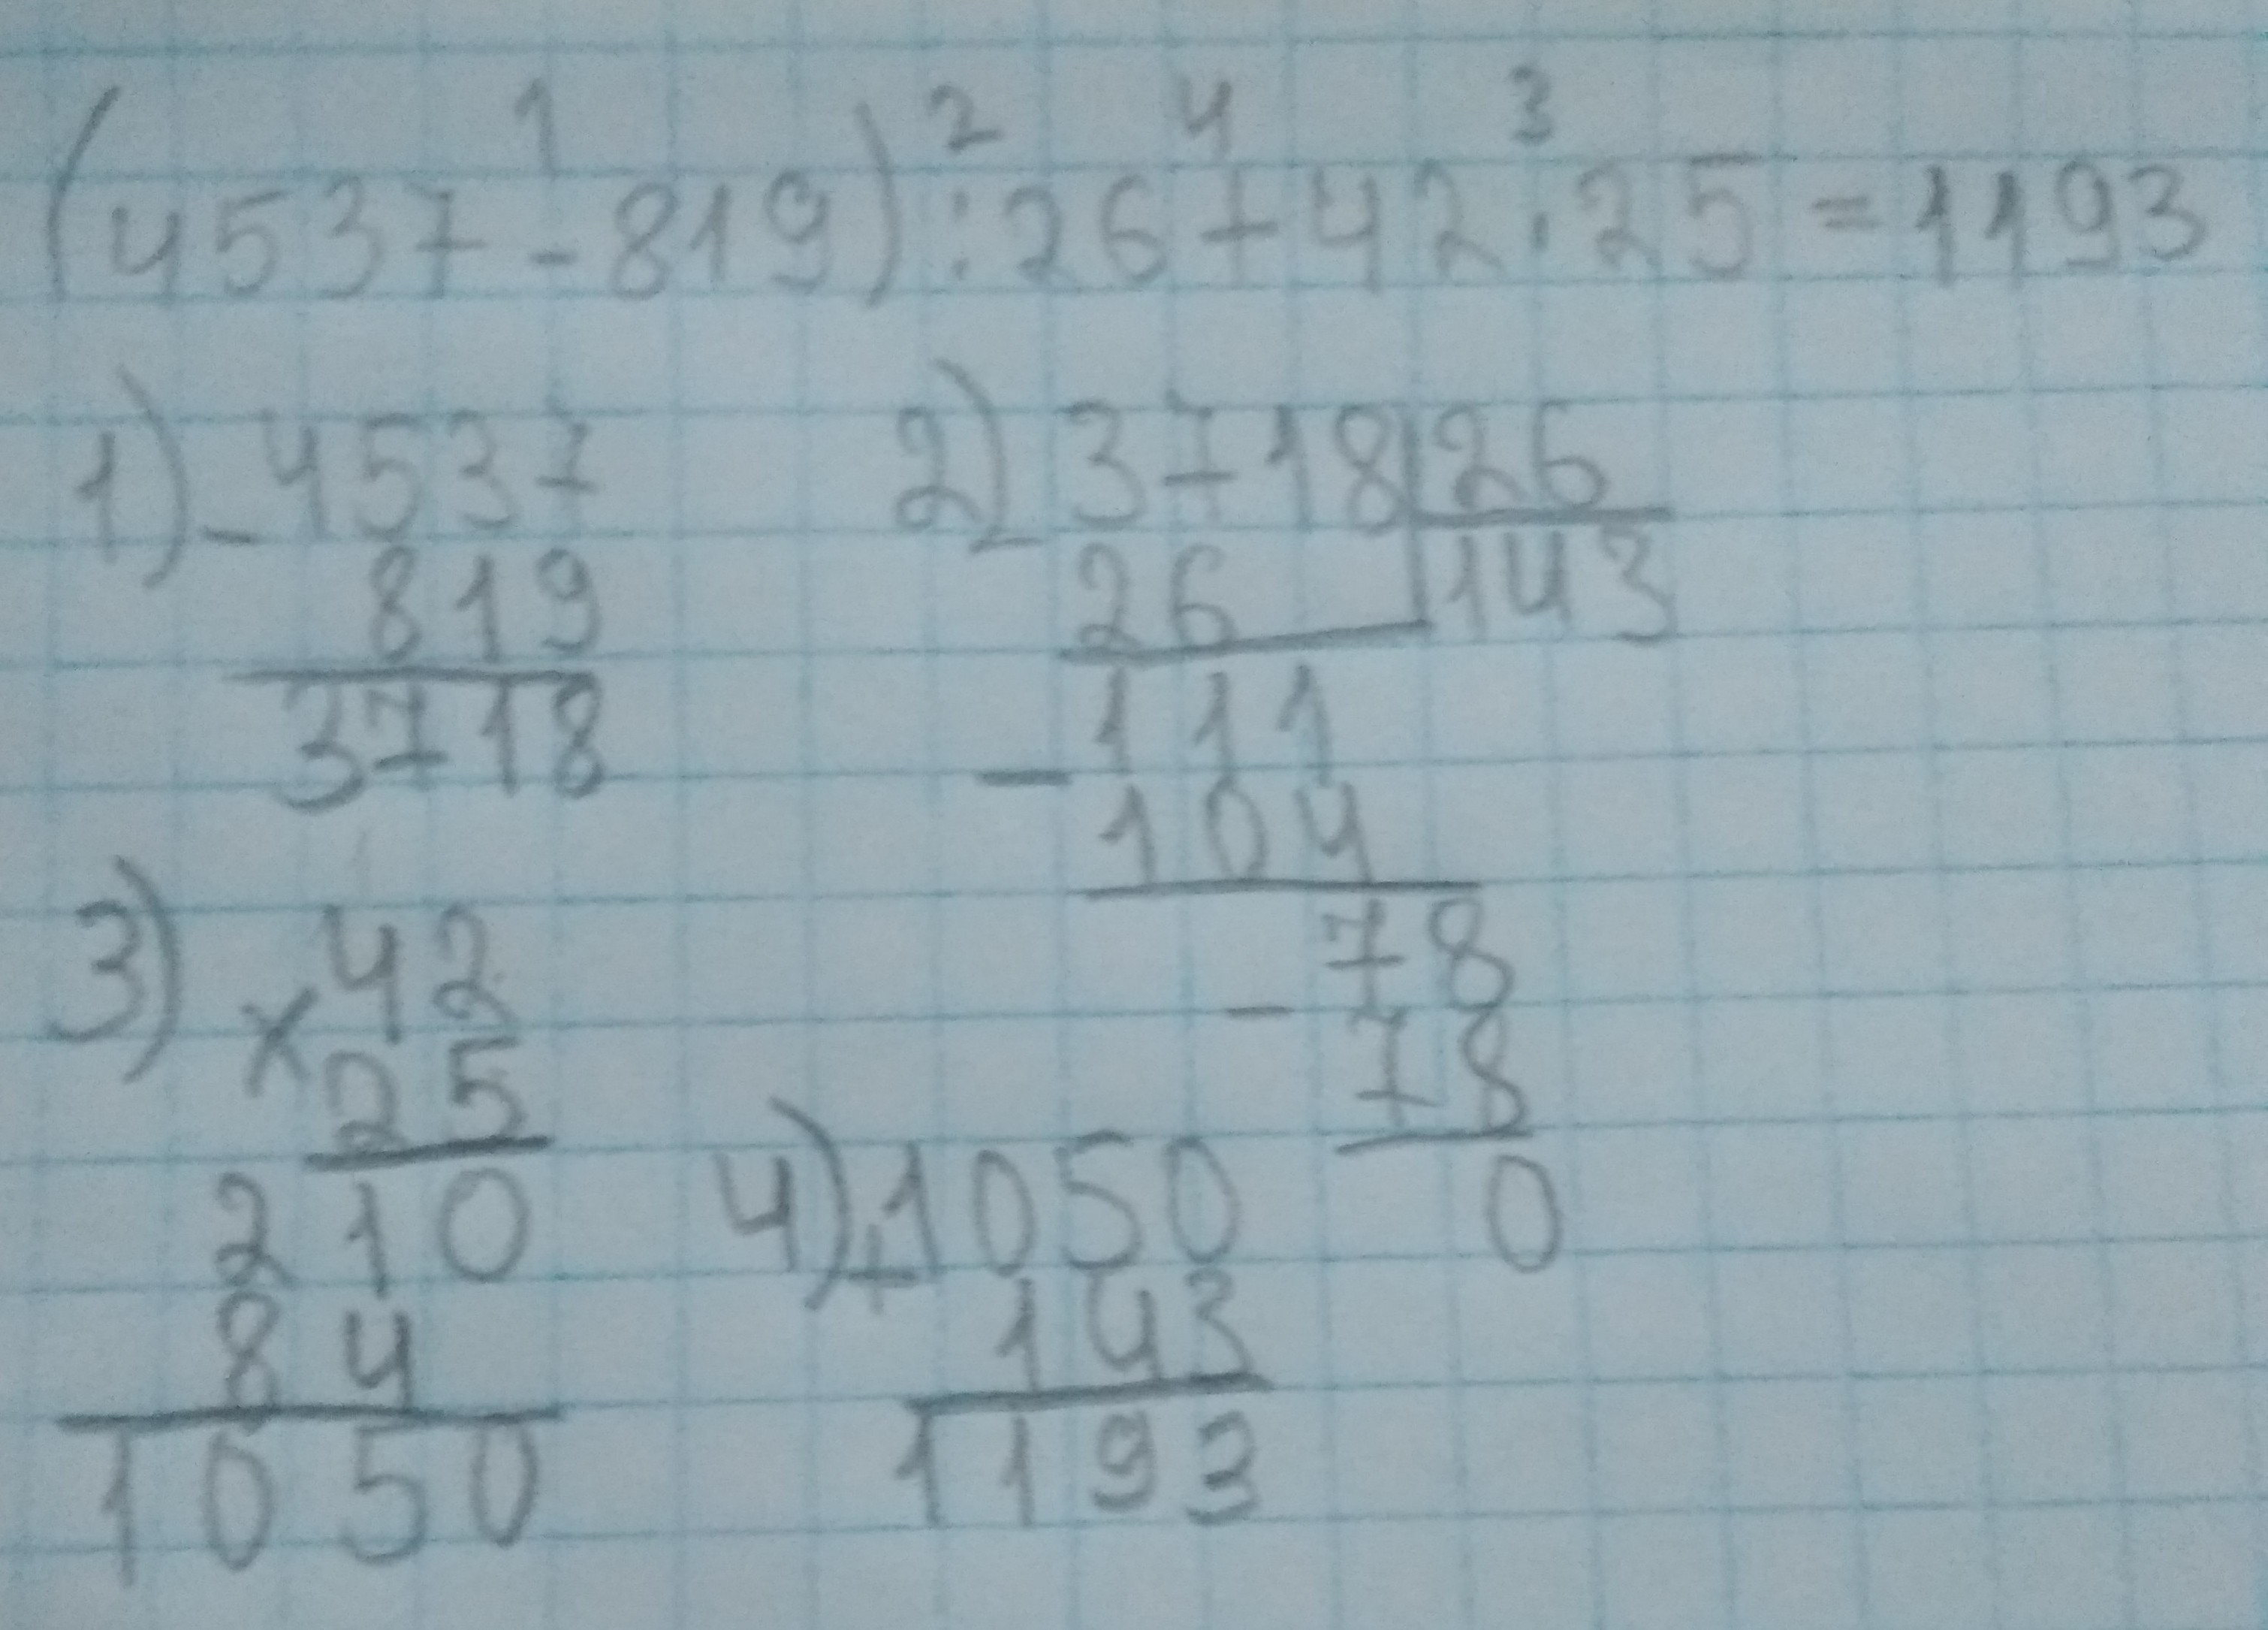 1 2 4 3
(4537-819):26+42·25=1193
1) -4537
819
3718
2) 3718|26
26 |143
-111
104
-78
78
0
3) ×42
25
210
84
1050
4) +1050
143
1193